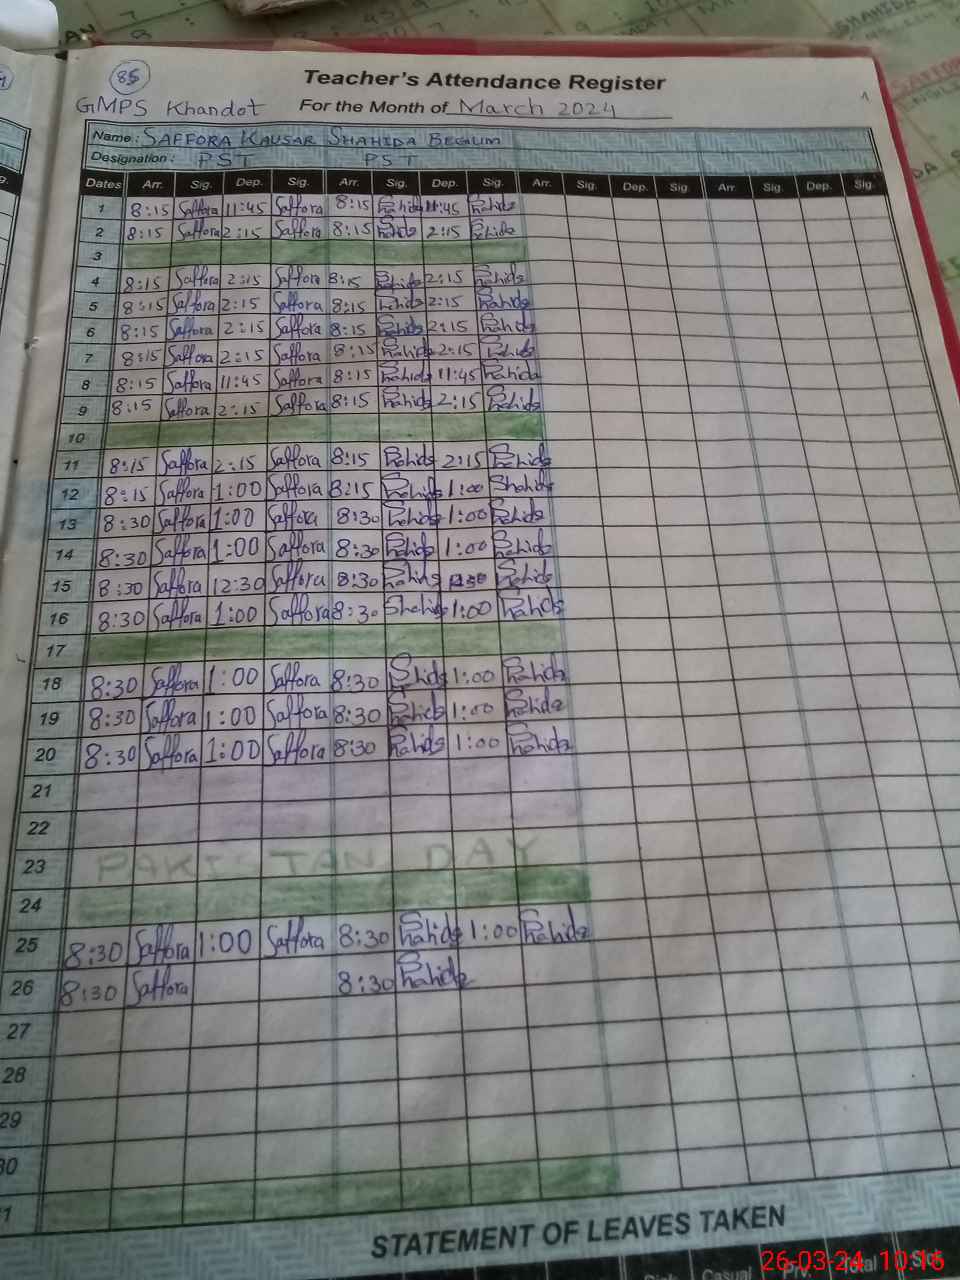 85
Teacher's Attendance Register
GMPS Khandot For the Month of March 2024
Name: SAFFORA KAUSAR SHAHIDA BEGUM
Designation: PST PST
Dates Arr. Sig. Dep. Sig. Arr. Sig. Dep. Sig. Arr. Sig. Dep. Sig. Arr. Sig. Dep. Sig.
1 8:15 Saffora 11:45 Saffora 8:15 Shahida 11:45 Shahida
2 8:15 Saffora 2:15 Saffora 8:15 Shahida 2:15 Shahida
3
4 8:15 Saffora 2:15 Saffora 8:15 Shahida 2:15 Shahida
5 8:15 Saffora 2:15 Saffora 8:15 Shahida 2:15 Shahida
6 8:15 Saffora 2:15 Saffora 8:15 Shahida 2:15 Shahida
7 8:15 Saffora 2:15 Saffora 8:15 Shahida 2:15 Shahida
8 8:15 Saffora 11:45 Saffora 8:15 Shahida 11:45 Shahida
9 8:15 Saffora 2:15 Saffora 8:15 Shahida 2:15 Shahida
10
11 8:15 Saffora 2:15 Saffora 8:15 Shahida 2:15 Shahida
12 8:15 Saffora 1:00 Saffora 8:15 Shahida 1:00 Shahida
13 8:30 Saffora 1:00 Saffora 8:30 Shahida 1:00 Shahida
14 8:30 Saffora 1:00 Saffora 8:30 Shahida 1:00 Shahida
15 8:30 Saffora 12:30 Saffora 8:30 Shahida 12:30 Shahida
16 8:30 Saffora 1:00 Saffora 8:30 Shahida 1:00 Shahida
17
18 8:30 Saffora 1:00 Saffora 8:30 Shahida 1:00 Shahida
19 8:30 Saffora 1:00 Saffora 8:30 Shahida 1:00 Shahida
20 8:30 Saffora 1:00 Saffora 8:30 Shahida 1:00 Shahida
21
22
23 PAKISTAN DAY
24
25 8:30 Saffora 1:00 Saffora 8:30 Shahida 1:00 Shahida
26 8:30 Saffora 8:30 Shahida
27
28
29
30
STATEMENT OF LEAVES TAKEN
Casual Prv. Total Sick
26-03-24 10:16